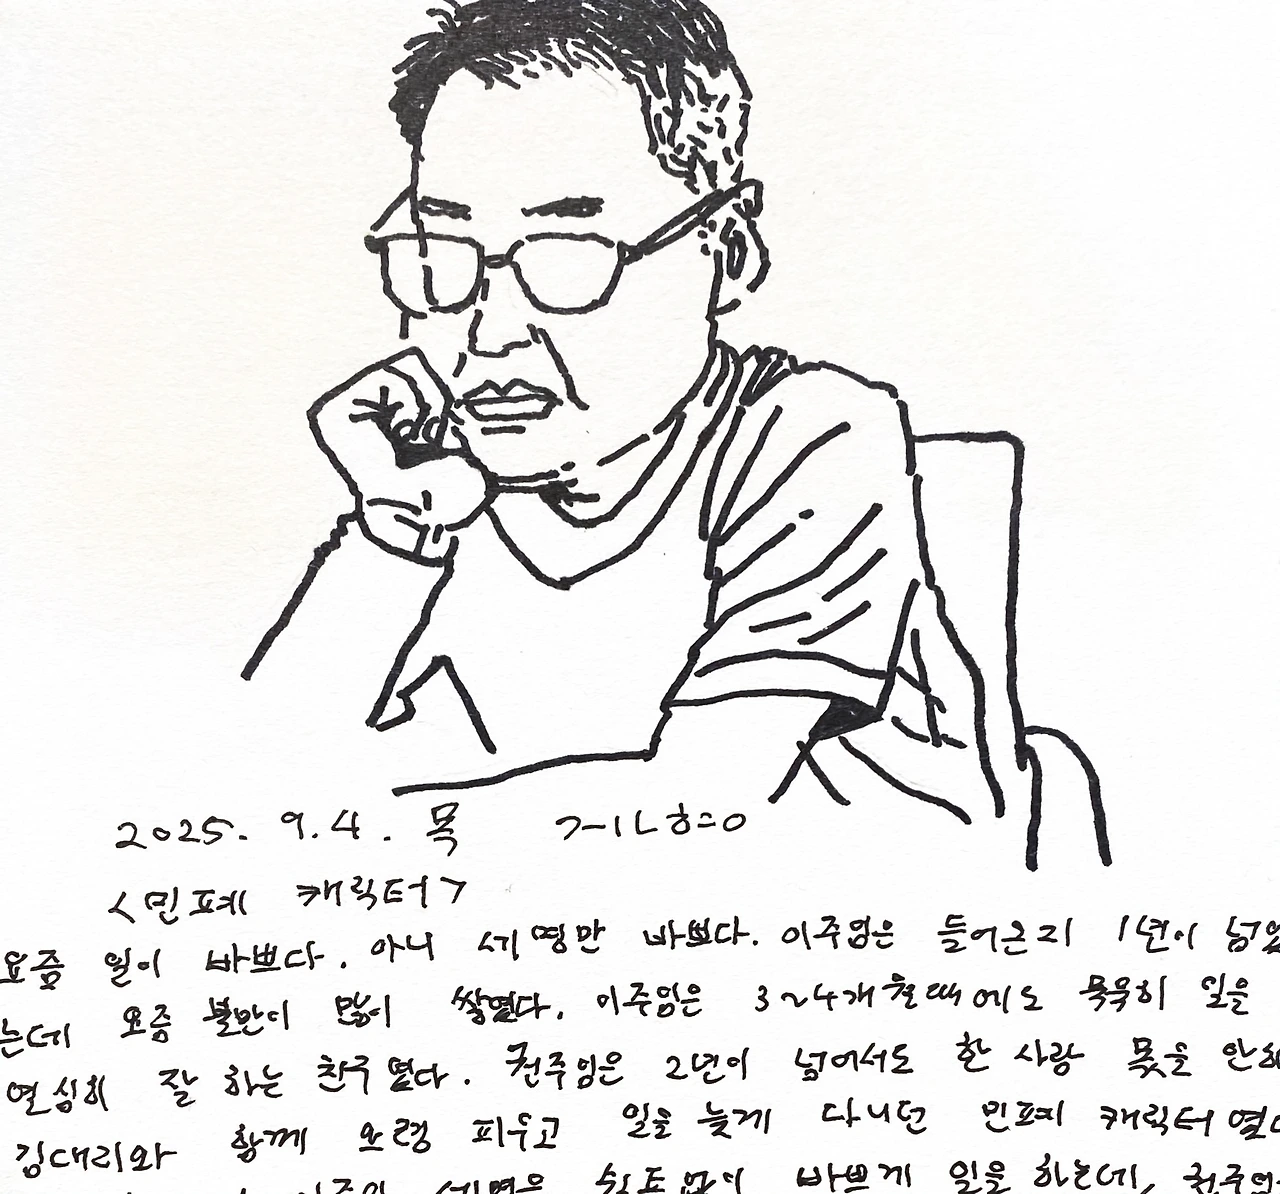 2025. 9. 4. 목 ㄱㅣㄴㅎㅡㅇ
<민폐 캐릭터>
요즘 일이 바쁘다. 아니 세 명만 바쁘다. 이주임은 들어온지 1년이 넘었
는데 요즘 불만이 많이 쌓였다. 이주임은 3~4개월때에도 묵묵히 일을
열심히 잘 하는 친구였다. 권주임은 2년이 넘어서도 한 사람 몫을 안해
김대리와 함께 요령 피우고 일을 늦게 다니던 민폐 캐릭터였
이주임 세명은 쉴틈없이 바쁘게 일을 하는데, 권주임